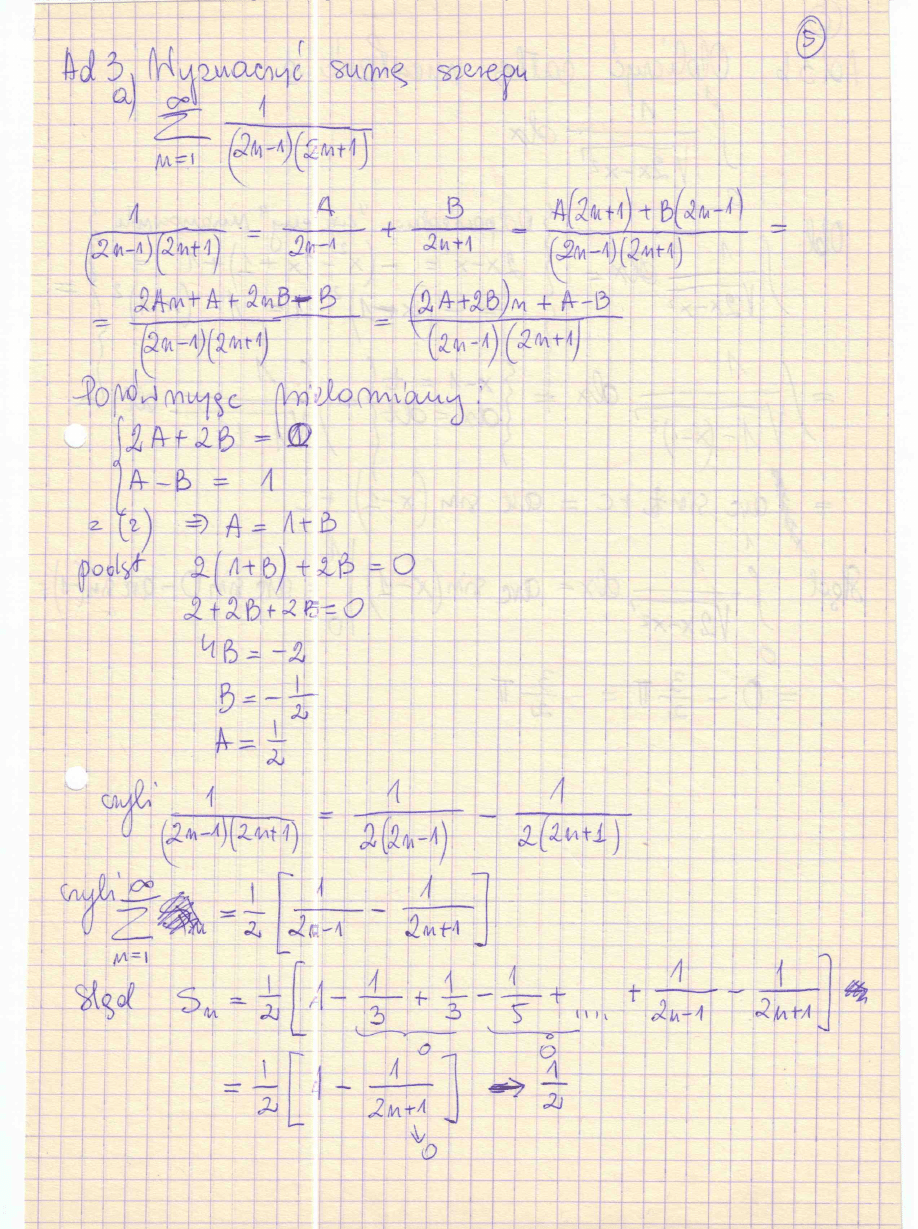 5
Ad 3, Wyznaczyć sumę szeregu
a) ∞∑n=1 1/((2n-1)(2n+1))
1/((2n-1)(2n+1)) = A/(2n-1) + B/(2n+1) = (A(2n+1) + B(2n-1))/((2n-1)(2n+1)) =
= (2An + A + 2nB - B)/((2n-1)(2n+1)) = ((2A+2B)n + A-B)/((2n-1)(2n+1))
Porównując wielomiany:
{2A + 2B = 0
{A - B = 1
z (2) ⇒ A = 1+B
podst 2(1+B) + 2B = 0
2+2B+2B=0
4B = -2
B = -1/2
A = 1/2
czyli 1/((2n-1)(2n+1)) = 1/(2(2n-1)) - 1/(2(2n+1))
czyli ∞∑n=1 = 1/2 [1/(2n-1) - 1/(2n+1)]
Stąd Sn = 1/2 [1 - 1/3 + 1/3 - 1/5 + .... + 1/(2n-1) - 1/(2n+1)]
0 0
= 1/2 [1 - 1/(2n+1)] → 1/2
↓0